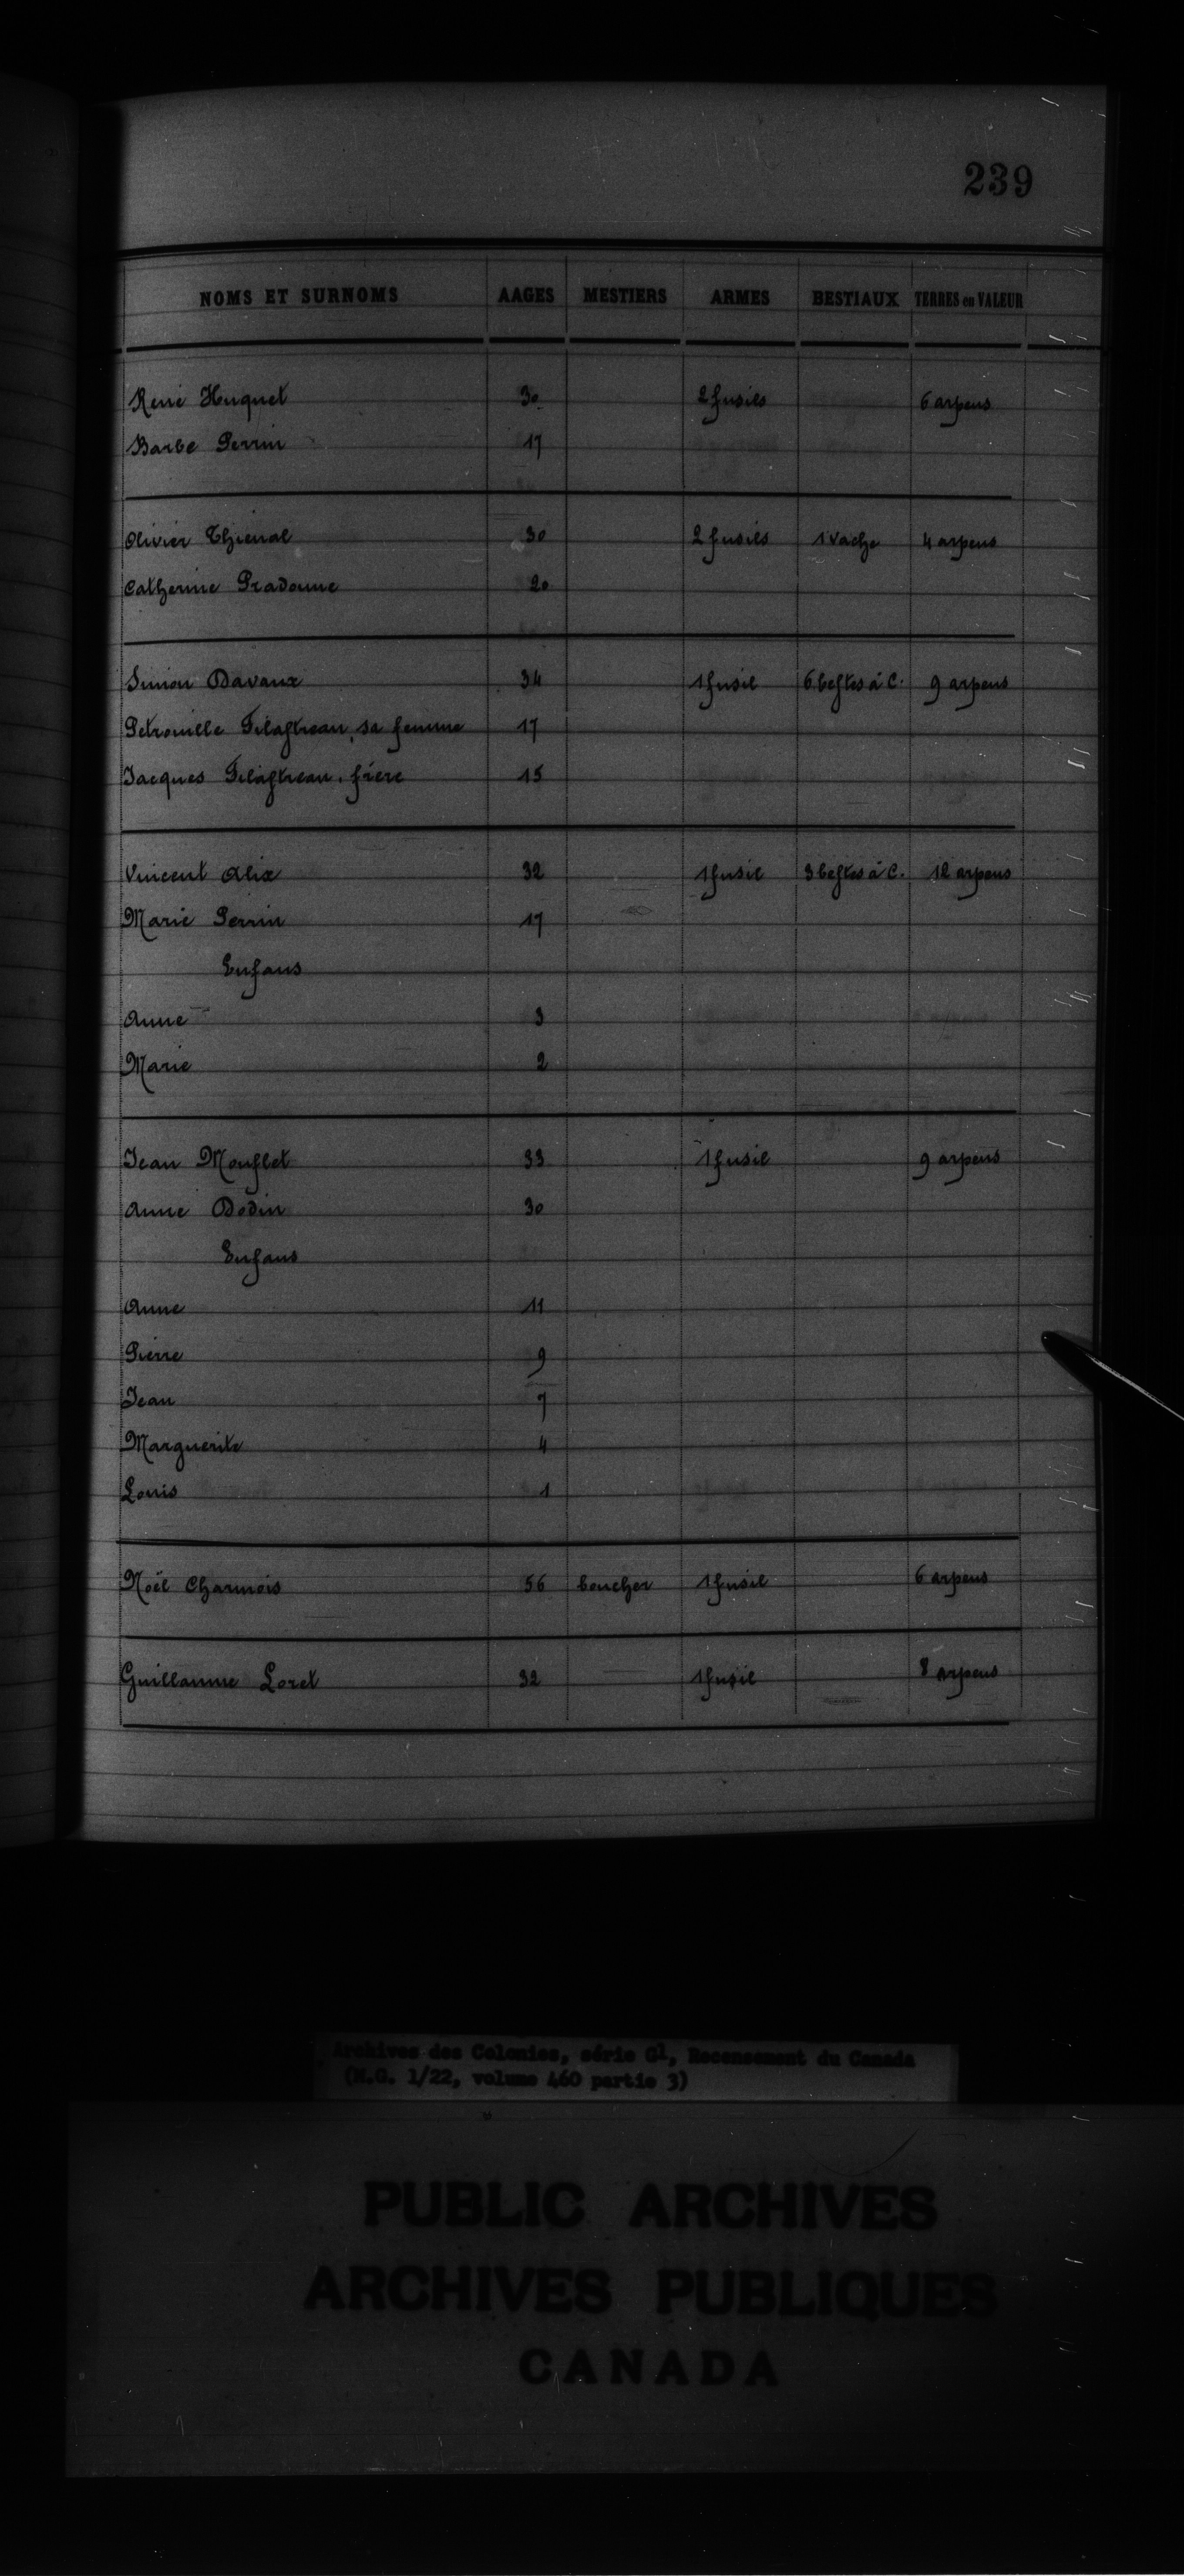 239
NOMS ET SURNOMS AAGES MESTIERS ARMES BESTIAUX TERRES en VALEUR
René Huquet 30 2 fusils 6 arpens
Barbe Perrin 17
Olivier Thienal 30 2 fusils 1 vache 4 arpens
Catherine Pradonne 20
Simon Davaux 34 1 fusil 6 bestes à C. 9 arpens
Petronille Filastreau, sa femme 17
Jacques Filastreau, frère 15
Vincent Alix 32 1 fusil 3 bestes à C. 12 arpens
Marie Perrin 17
Enfans
Anne 3
Marie 2
Jean Mouflet 33 1 fusil 9 arpens
Anne Dodin 30
Enfans
Anne 11
Pierre 9
Jean 7
Marguerite 4
Louis 1
Noël Charmois 56 boucher 1 fusil 6 arpens
Guillaume Loret 32 1 fusil 8 arpens
Archives des Colonies, série G1, Recensement du Canada
(M.G. 1/22, volume 460 partie 3)
PUBLIC ARCHIVES
ARCHIVES PUBLIQUES
CANADA